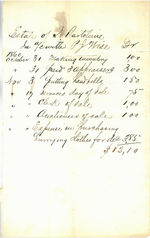 Estate of
In acct with P. J. Wise Dr
1860
October 31 making inventory 1.00
" 31 paid 3 appraisers 3.00
Nov 3 Putting handbills 1.50
" 17 services day of sale 75
" Clerk of sale 1.00
" Auctioneer of sale 1.00
" Expense in purchasing
burying Clothes for dec 3.85
$ 12,10